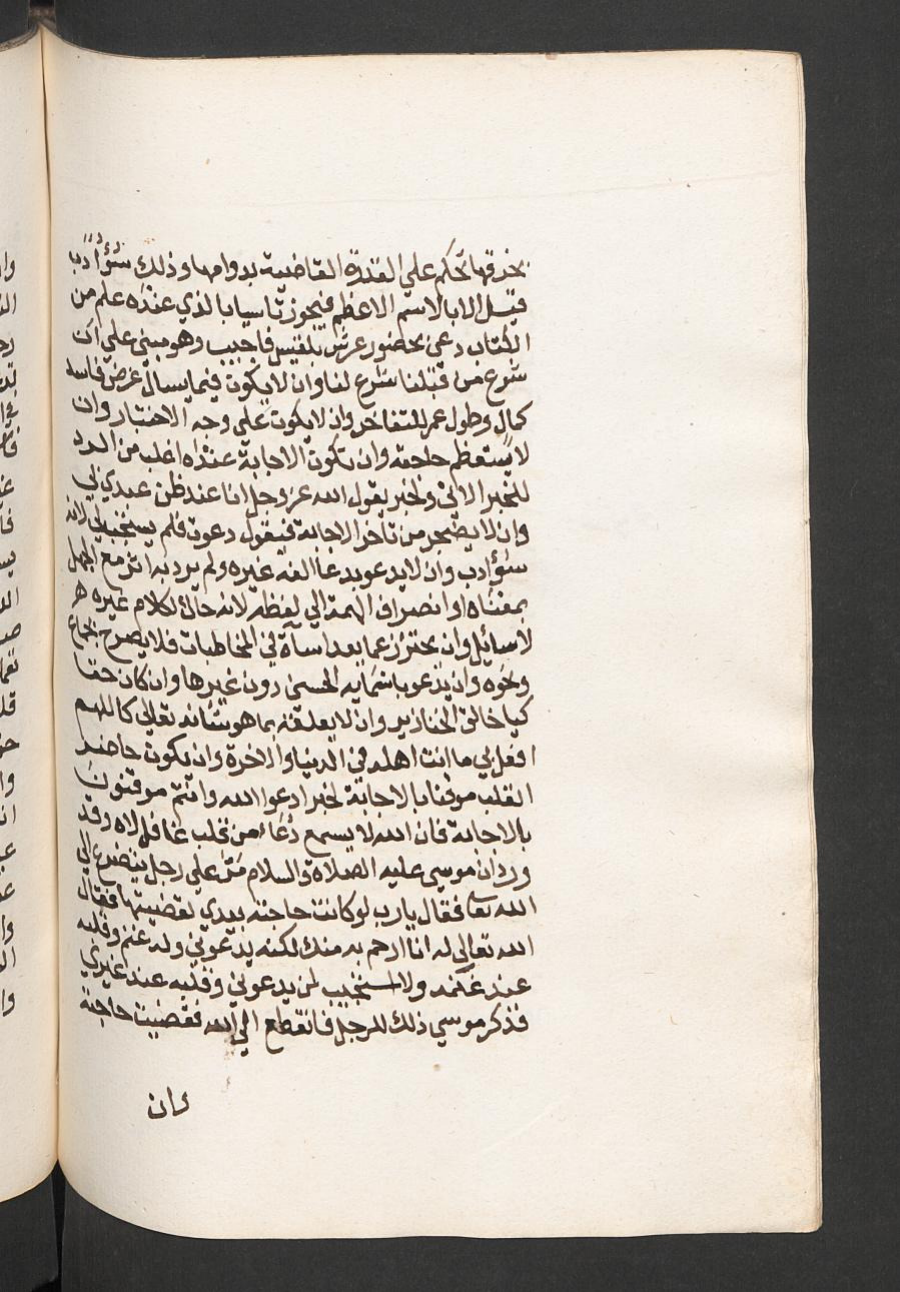 بخرقها تحكم علي القدرة القاضية بدوامها وذلك سوء ادب
قيل الا بالاسم الاعظم فيجوز تاسيا بالذي عنده علم من
الكتاب دعي بحضور عرش بلقيس فاجيب وهو مبني علي ان
شرع من قبلنا شرع لنا وان لا يكون فيما يسال غرض فاسد
كمال وطول عمر للتفاخر وان لا يكون علي وجه الاختبار وان
لا يستعظم حاجته وان تكون الاجابة عنده اغلب من الرد
للخبر الاتي ولخبر يقول الله عز وجل انا عند ظن عبدي بي
وان لا يضجر من تاخر الاجابة فيقول دعوت فلم يستجب لي لانه
سوء ادب وان لا يدعو بدعا الفه غيره ولم يرد به اثر مع الجهل
بمعناه او انصراف الهمة الي لفظه لانه حالئ لكلام غيره
لا سائل وان يحترز عما يعد اساة في المخاطبات فلا يصرح بجماع
ونحوه وان يدعو باسمايه الحسني دون غيرها وان كان حقا
كيا خالق الخنازير وان لا يعلقه بما هو شانه تعالي كاللهم
افعل بي ما انت اهله في الدنيا والاخرة وان يكون حاضر
القلب موقنا بالاجابة لخبر ادعوا الله وانتم موقنون
بالاجابة فان الله لا يسمع دعاء من قلب غافل لاه وقد
ورد ان موسي عليه الصلاة والسلام مر علي رجل يتضرع الي
الله تعا فقال يارب لو كانت حاجته بيدي لقضيتها فقال
الله تعالي له انا ارحم به منك لكنه يدعوني وله غنم وقلبه
عند غنمه ولا استجيب لمن يدعوني وقلبه عند غيري
فذكر موسي ذلك للرجل فانقطع الي الله فقضيت حاجته
وان